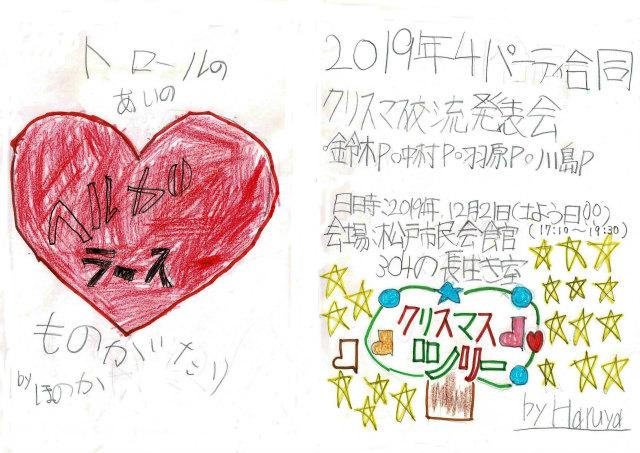 トロールの
あいの
ヘルガ
ラース
ものがたり
by ほのか
2019年4パーティ合同
クリスマス交流発表会
・鈴木P・中村P・羽原P・川島P
日時:2019年.12月21日(土よう日)
(17:10～19:30)
会場:松戸市民会館
304の長生き室
クリスマス
ロンリー
by Haruya